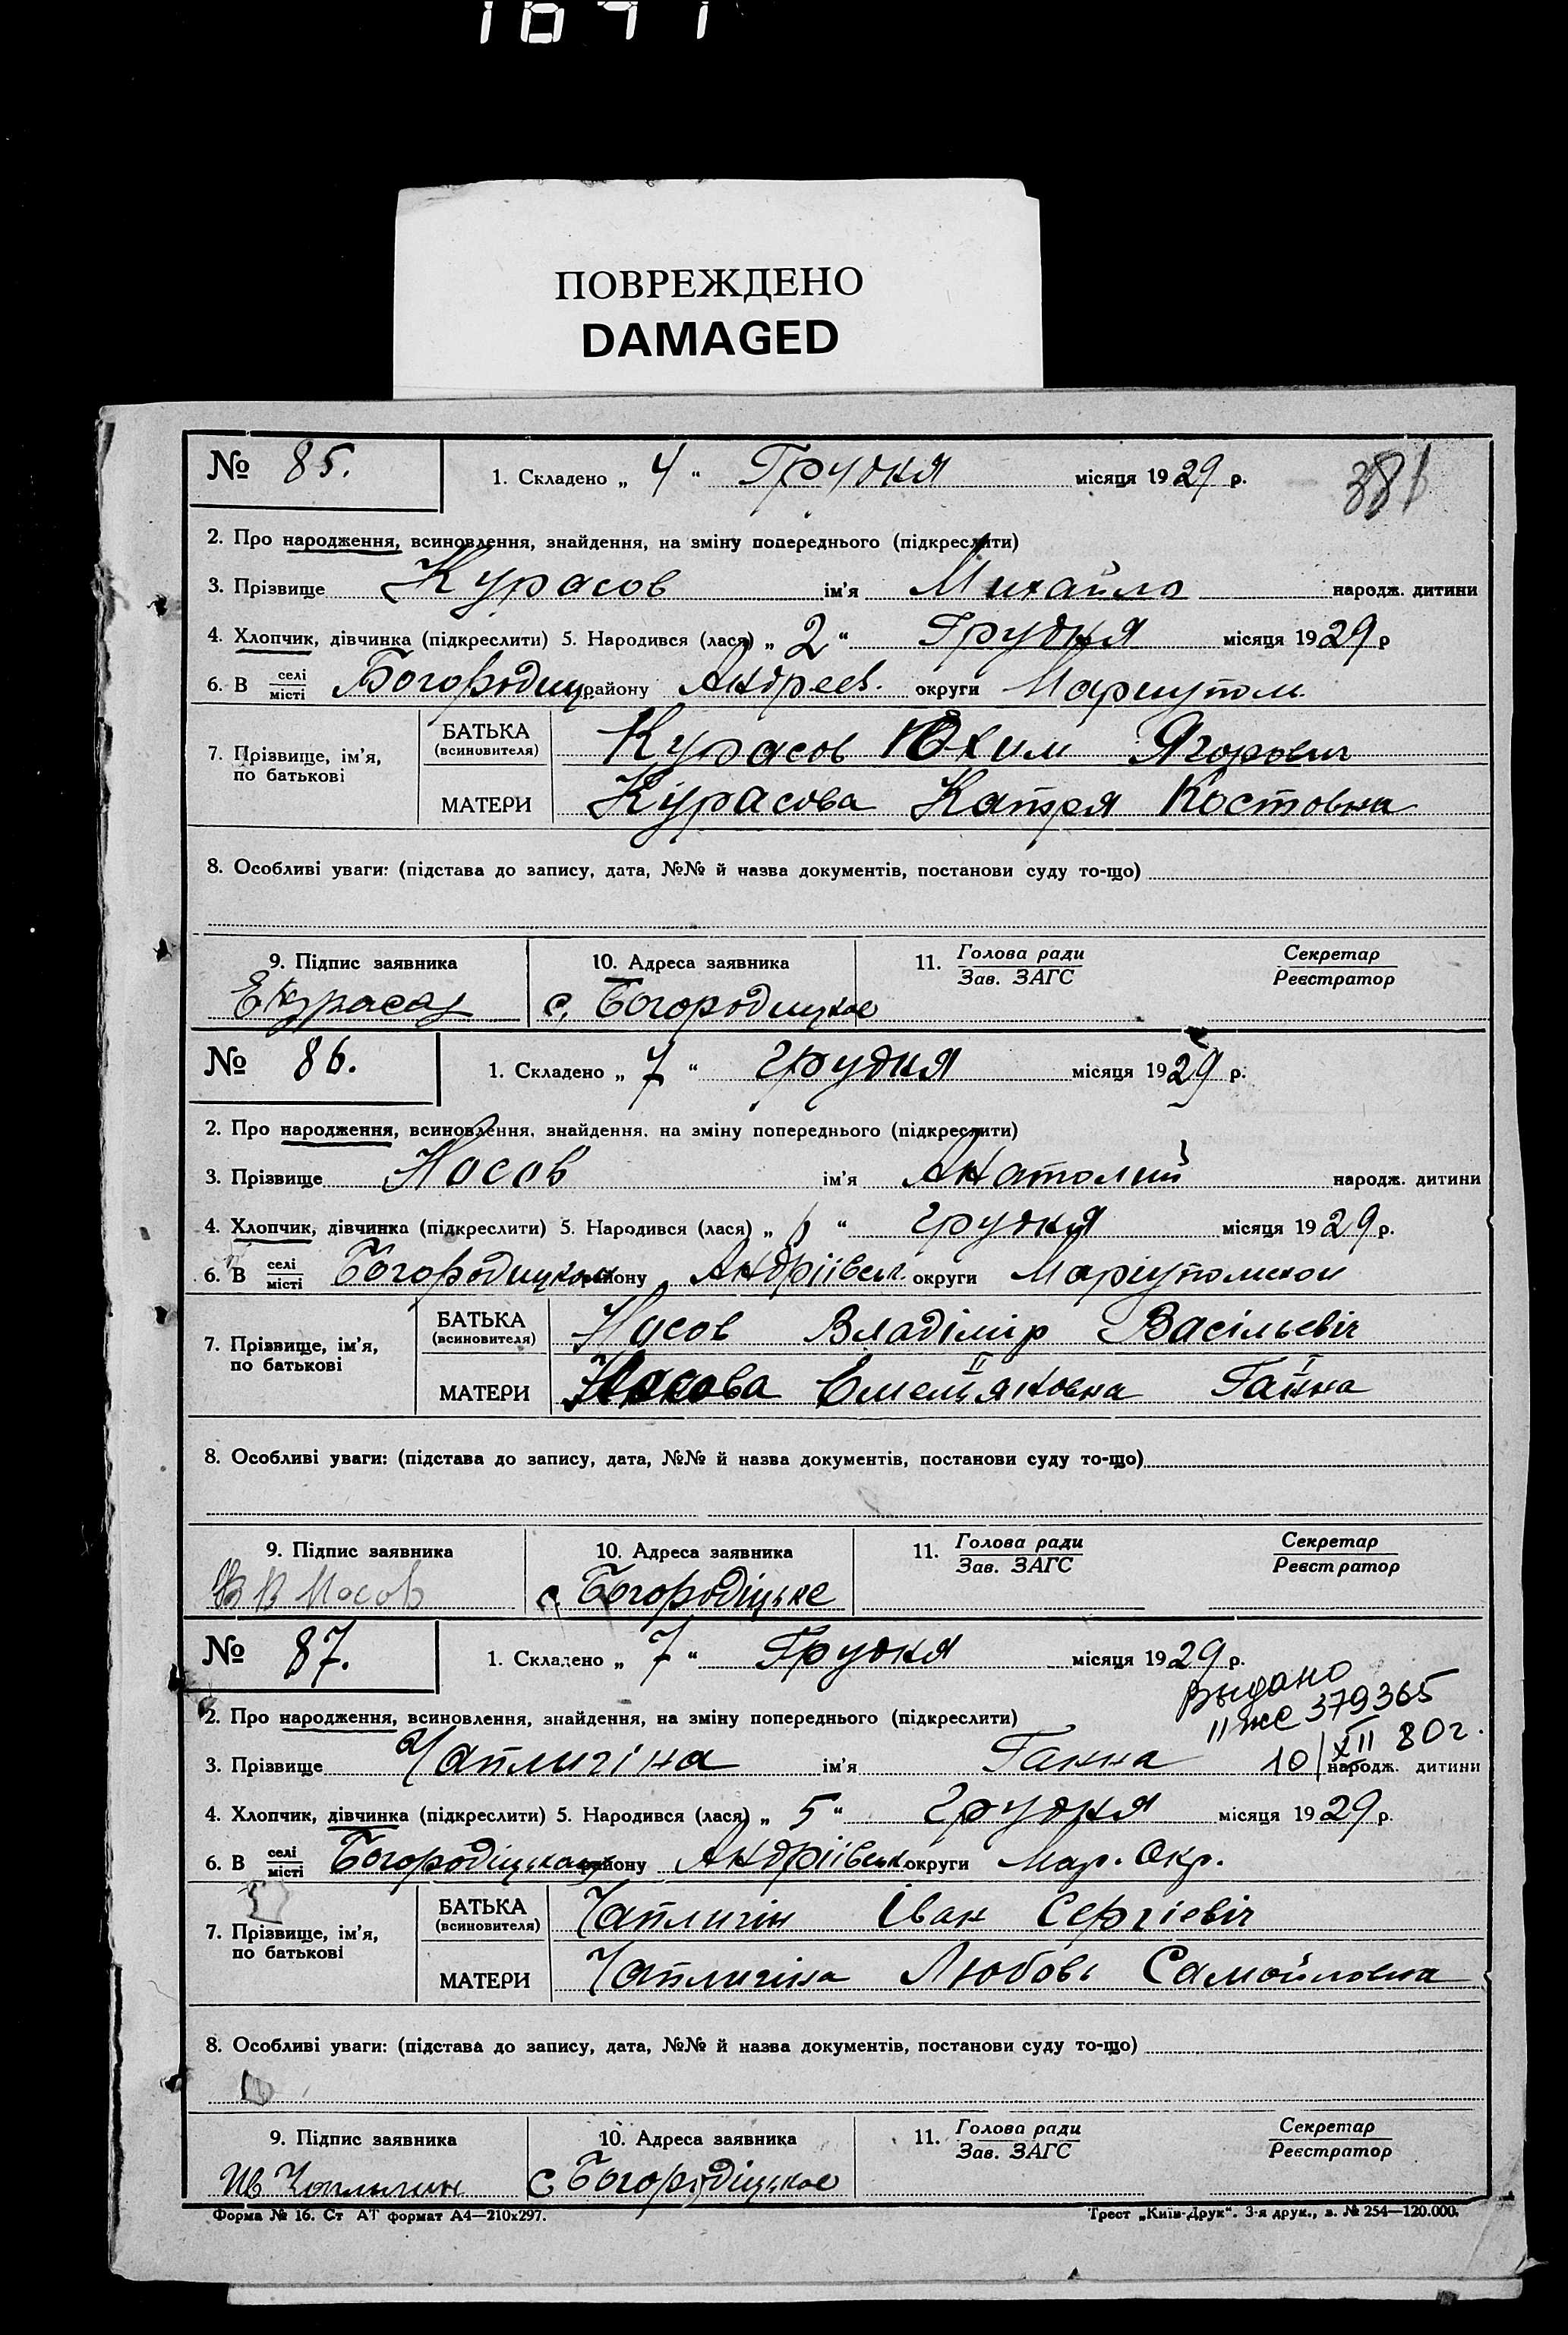 ПОВРЕЖДЕНО
DAMAGED
№ 85. 1. Складено „ 4 “ Грудня місяця 1929 р. 381
2. Про народження, всиновлення, знайдення, на зміну попереднього (підкреслити)
3. Прізвище Курасов ім'я Михайло народж. дитини
4. Хлопчик, дівчинка (підкреслити) 5. Народився (лася) „ 2 “ Грудня місяця 1929 р
6. В селі/місті Богородиц. району Андреев. округи Мариупол.
7. Прізвище, ім'я, по батькові БАТЬКА (всиновителя) Курасов Юхим Ягорович
МАТЕРИ Курасова Катря Костовна
8. Особливі уваги: (підстава до запису, дата, №№ й назва документів, постанови суду то-що)
9. Підпис заявника 10. Адреса заявника 11. Голова ради/Зав. ЗАГС Секретар/Реєстратор
с. Богородицкое
№ 86. 1. Складено „ 7 “ грудня місяця 1929 р.
2. Про народження, всиновлення, знайдення, на зміну попереднього (підкреслити)
3. Прізвище Носов ім'я Анатолий народж. дитини
4. Хлопчик, дівчинка (підкреслити) 5. Народився (лася) „ “ грудня місяця 1929 р.
6. В селі/місті району Андріївськ. округи
7. Прізвище, ім'я, по батькові БАТЬКА (всиновителя) Носов Владімір Васільевіч
МАТЕРИ Носова Емельяновна II Ганна I
8. Особливі уваги: (підстава до запису, дата, №№ й назва документів, постанови суду то-що)
9. Підпис заявника 10. Адреса заявника 11. Голова ради/Зав. ЗАГС Секретар/Реєстратор
В В Носов с. Богородіцьке
№ 87. 1. Складено „ 7 “ Грудня місяця 1929 р.
Выдано
II же 379365
10/XII 80г.
2. Про народження, всиновлення, знайдення, на зміну попереднього (підкреслити)
3. Прізвище Чаплигіна ім'я Ганна народж. дитини
4. Хлопчик, дівчинка (підкреслити) 5. Народився (лася) „ 5 “ грудня місяця 1929 р.
6. В селі/місті району Андріївськ. округи Мар. Окр.
7. Прізвище, ім'я, по батькові БАТЬКА (всиновителя) Чаплигін Іван Сергіевіч
МАТЕРИ Чаплигіна Любовь Самойловна
8. Особливі уваги: (підстава до запису, дата, №№ й назва документів, постанови суду то-що)
9. Підпис заявника 10. Адреса заявника 11. Голова ради/Зав. ЗАГС Секретар/Реєстратор
Ив Чаплыгин с Богородіцкое
Форма № 16. Ст АТ формат А4—210х297. Трест „Київ-Друк“. 3-я друк., з. № 254—120.000.